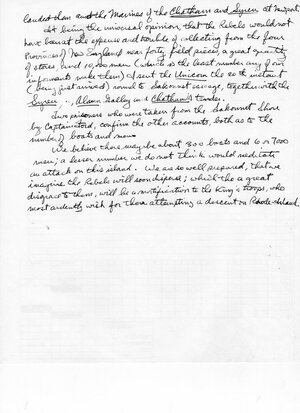 landed them and the Marines of the Chatham and Syren at
It being the universal opinion, that the Rebels would not
have been at the expence and trouble of collecting from the four
Provinces of New England war forty field pieces, a great quantity
of stores, and 10,000 men (which is the least number any of our
informants make them) I sent the Unicorn the 20th instant
(being just arrived) round to Sakonnet passage, together with the
Syren, Alarm Galley and Chatham's tender.
Two prisoners who were taken from the Sakonnet Shore
by Captain, confirm the other accounts, both as to the
number of boats and men
We believe there may be about 300 boats and 6 or 7000
men; a lesser number we do not think would meditate
an attack on this island. We are so well prepared, that we
imagine the Rebels will soon disperse; which tho a great
disgrace to them, will be a mortification to the King's troops, who
most ardently wish for them attempting a descent on Rhode-Island.